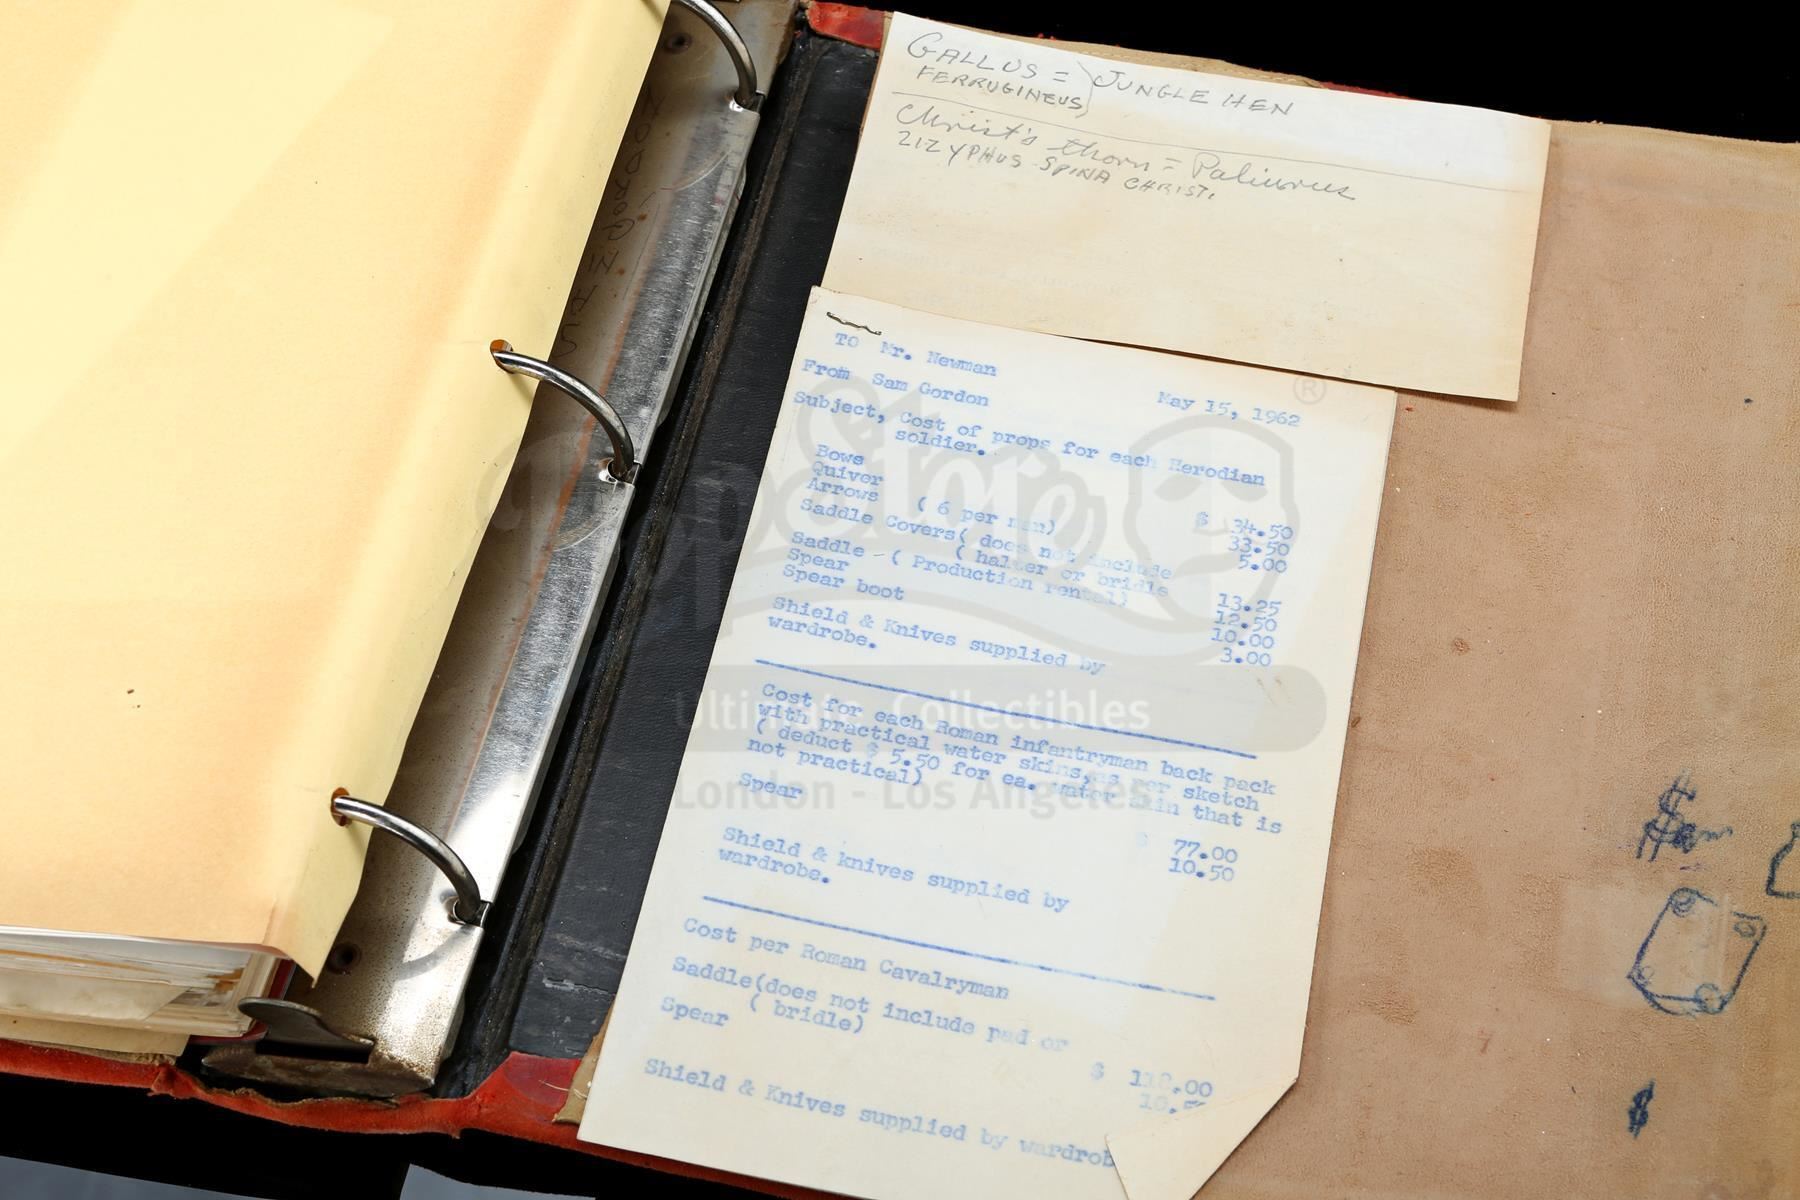 GALLUS = JUNGLE HEN
FERRUGINEUS
Christ's thorn = Paliurus
ZIZYPHUS SPINA CHRISTI.
TO Mr. Newman
From Sam Gordon
May 15, 1962
Subject, Cost of props for each Herodian
soldier.
Bows $ 34.50
Quiver 33.50
Arrows ( 6 per man) 5.00
Saddle Covers( does not include
( halter or bridle 13.25
Saddle - ( Production rental) 12.50
Spear 10.00
Spear boot 3.00
Shield & Knives supplied by
wardrobe.
Cost for each Roman infantryman back pack
with practical water skins,as per sketch
( deduct $ 5.50 for ea. water skin that is
not practical) $ 77.00
Spear 10.50
Shield & knives supplied by
wardrobe.
Cost per Roman Cavalryman
Saddle(does not include pad or
( bridle) $ 00
Spear 10.
Shield & Knives supplied by wardrob
PropStore ®
Ultimate Collectibles
London - Los Angeles
Sam
$
GORDON